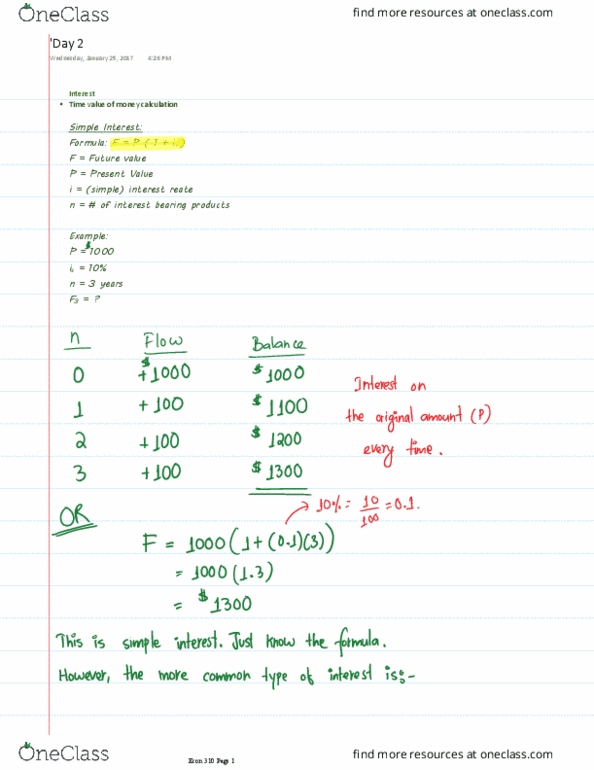 OneClass
find more resources at oneclass.com
'Day 2
Wednesday, January 25, 2017 6:26 PM
Interest
• Time value of money calculation
Simple Interest:
Formula: F = P ( 1 + i
F = Future value
P = Present Value
i = (simple) interest reate
n = # of interest bearing products
Example:
P = $1000
i, = 10%
n = 3 years
F₃ = ?
n Flow Balance
0 $ +1000 $1000
1 +100 $1100
2 +100 $1200
3 +100 $1300
Interest on
the original amount (P)
every time.
OR
10% = 10/100 = 0.1.
F = 1000(1+(0.1)(3))
= 1000(1.3)
= $1300
This is simple interest. Just know the formula.
However, the more common type of interest is:-
OneClass
Econ 310 Page 1
find more resources at oneclass.com